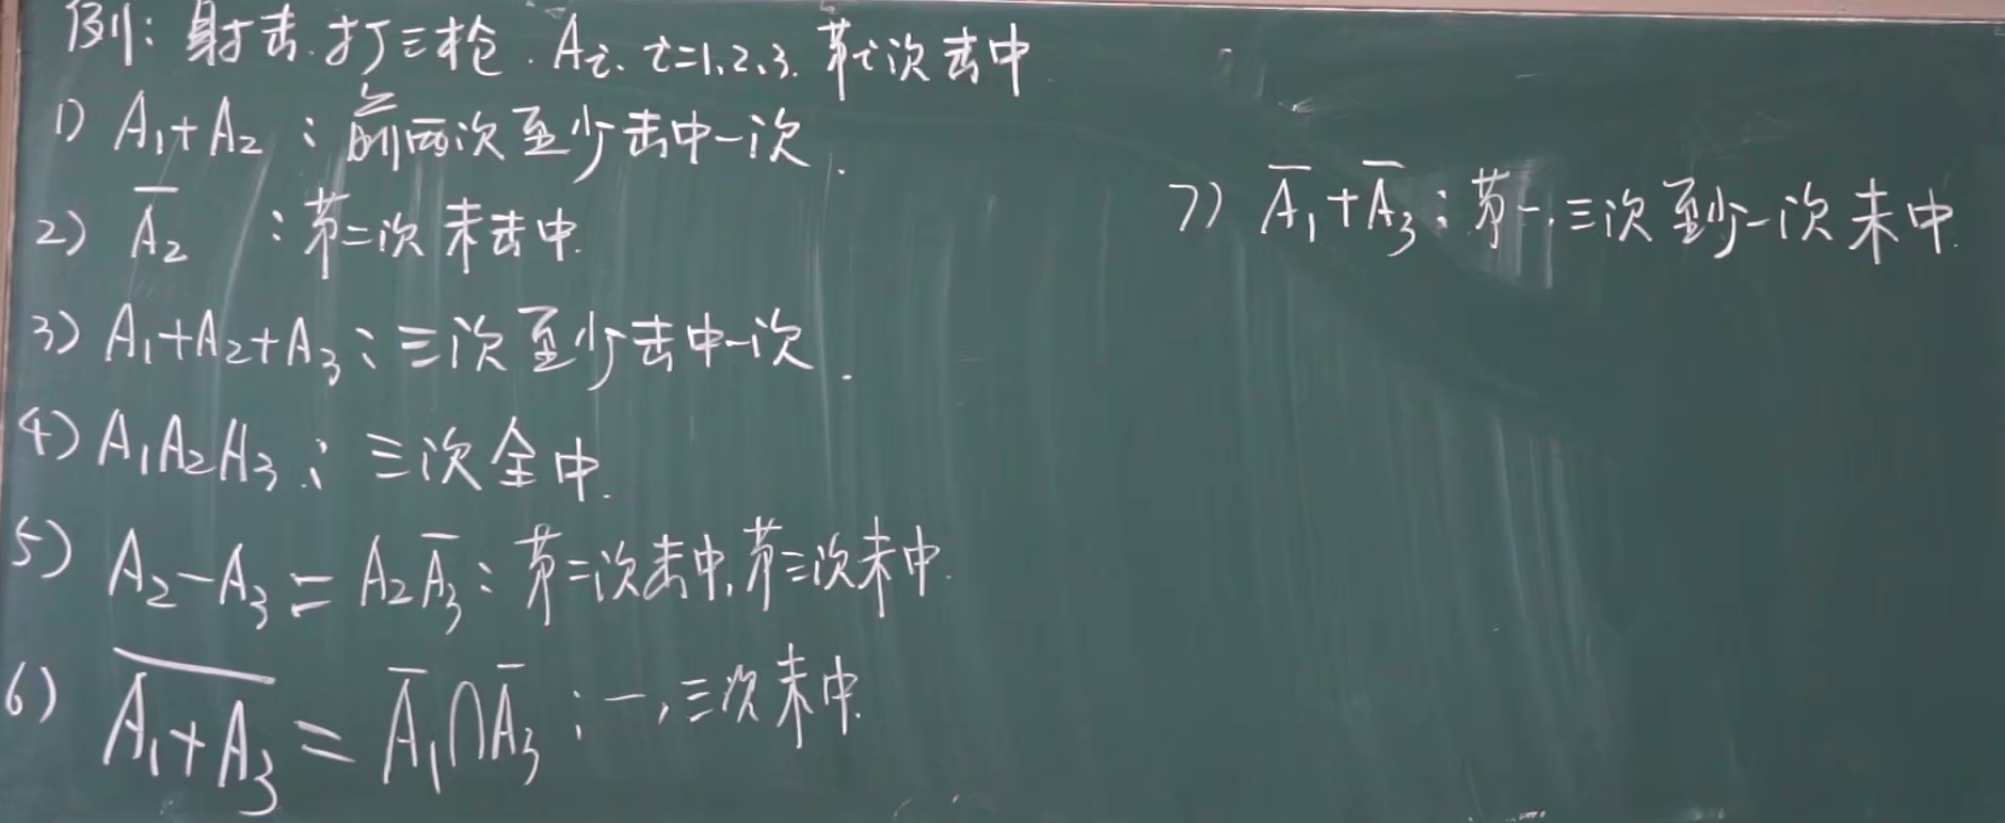 例: 射击.打三枪. Aᵢ. i=1.2.3. 第i次击中
1) A₁+A₂ : 前两次至少击中一次.
2) A̅₂ : 第二次未击中.
3) A₁+A₂+A₃ : 三次至少击中一次.
4) A₁A₂A₃ : 三次全中.
5) A₂-A₃ = A₂A̅₃ : 第二次击中,第三次未中.
6) \overline{A₁+A₃} = A̅₁∩A̅₃ : 一,三次未中.
7) A̅₁+A̅₃ : 第一,三次至少一次未中.